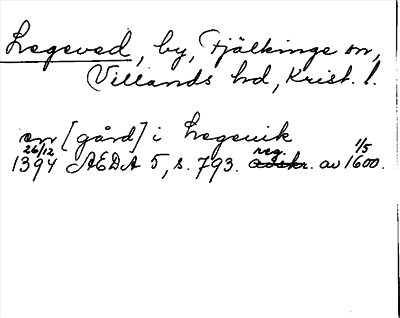 Legeved, by, Fjälkinge sn,
Villands hd, Krist. l.
en [gård] i Legeuik
26/12 1394 AEDA 5, s. 793. reg. av 1/5 1600.